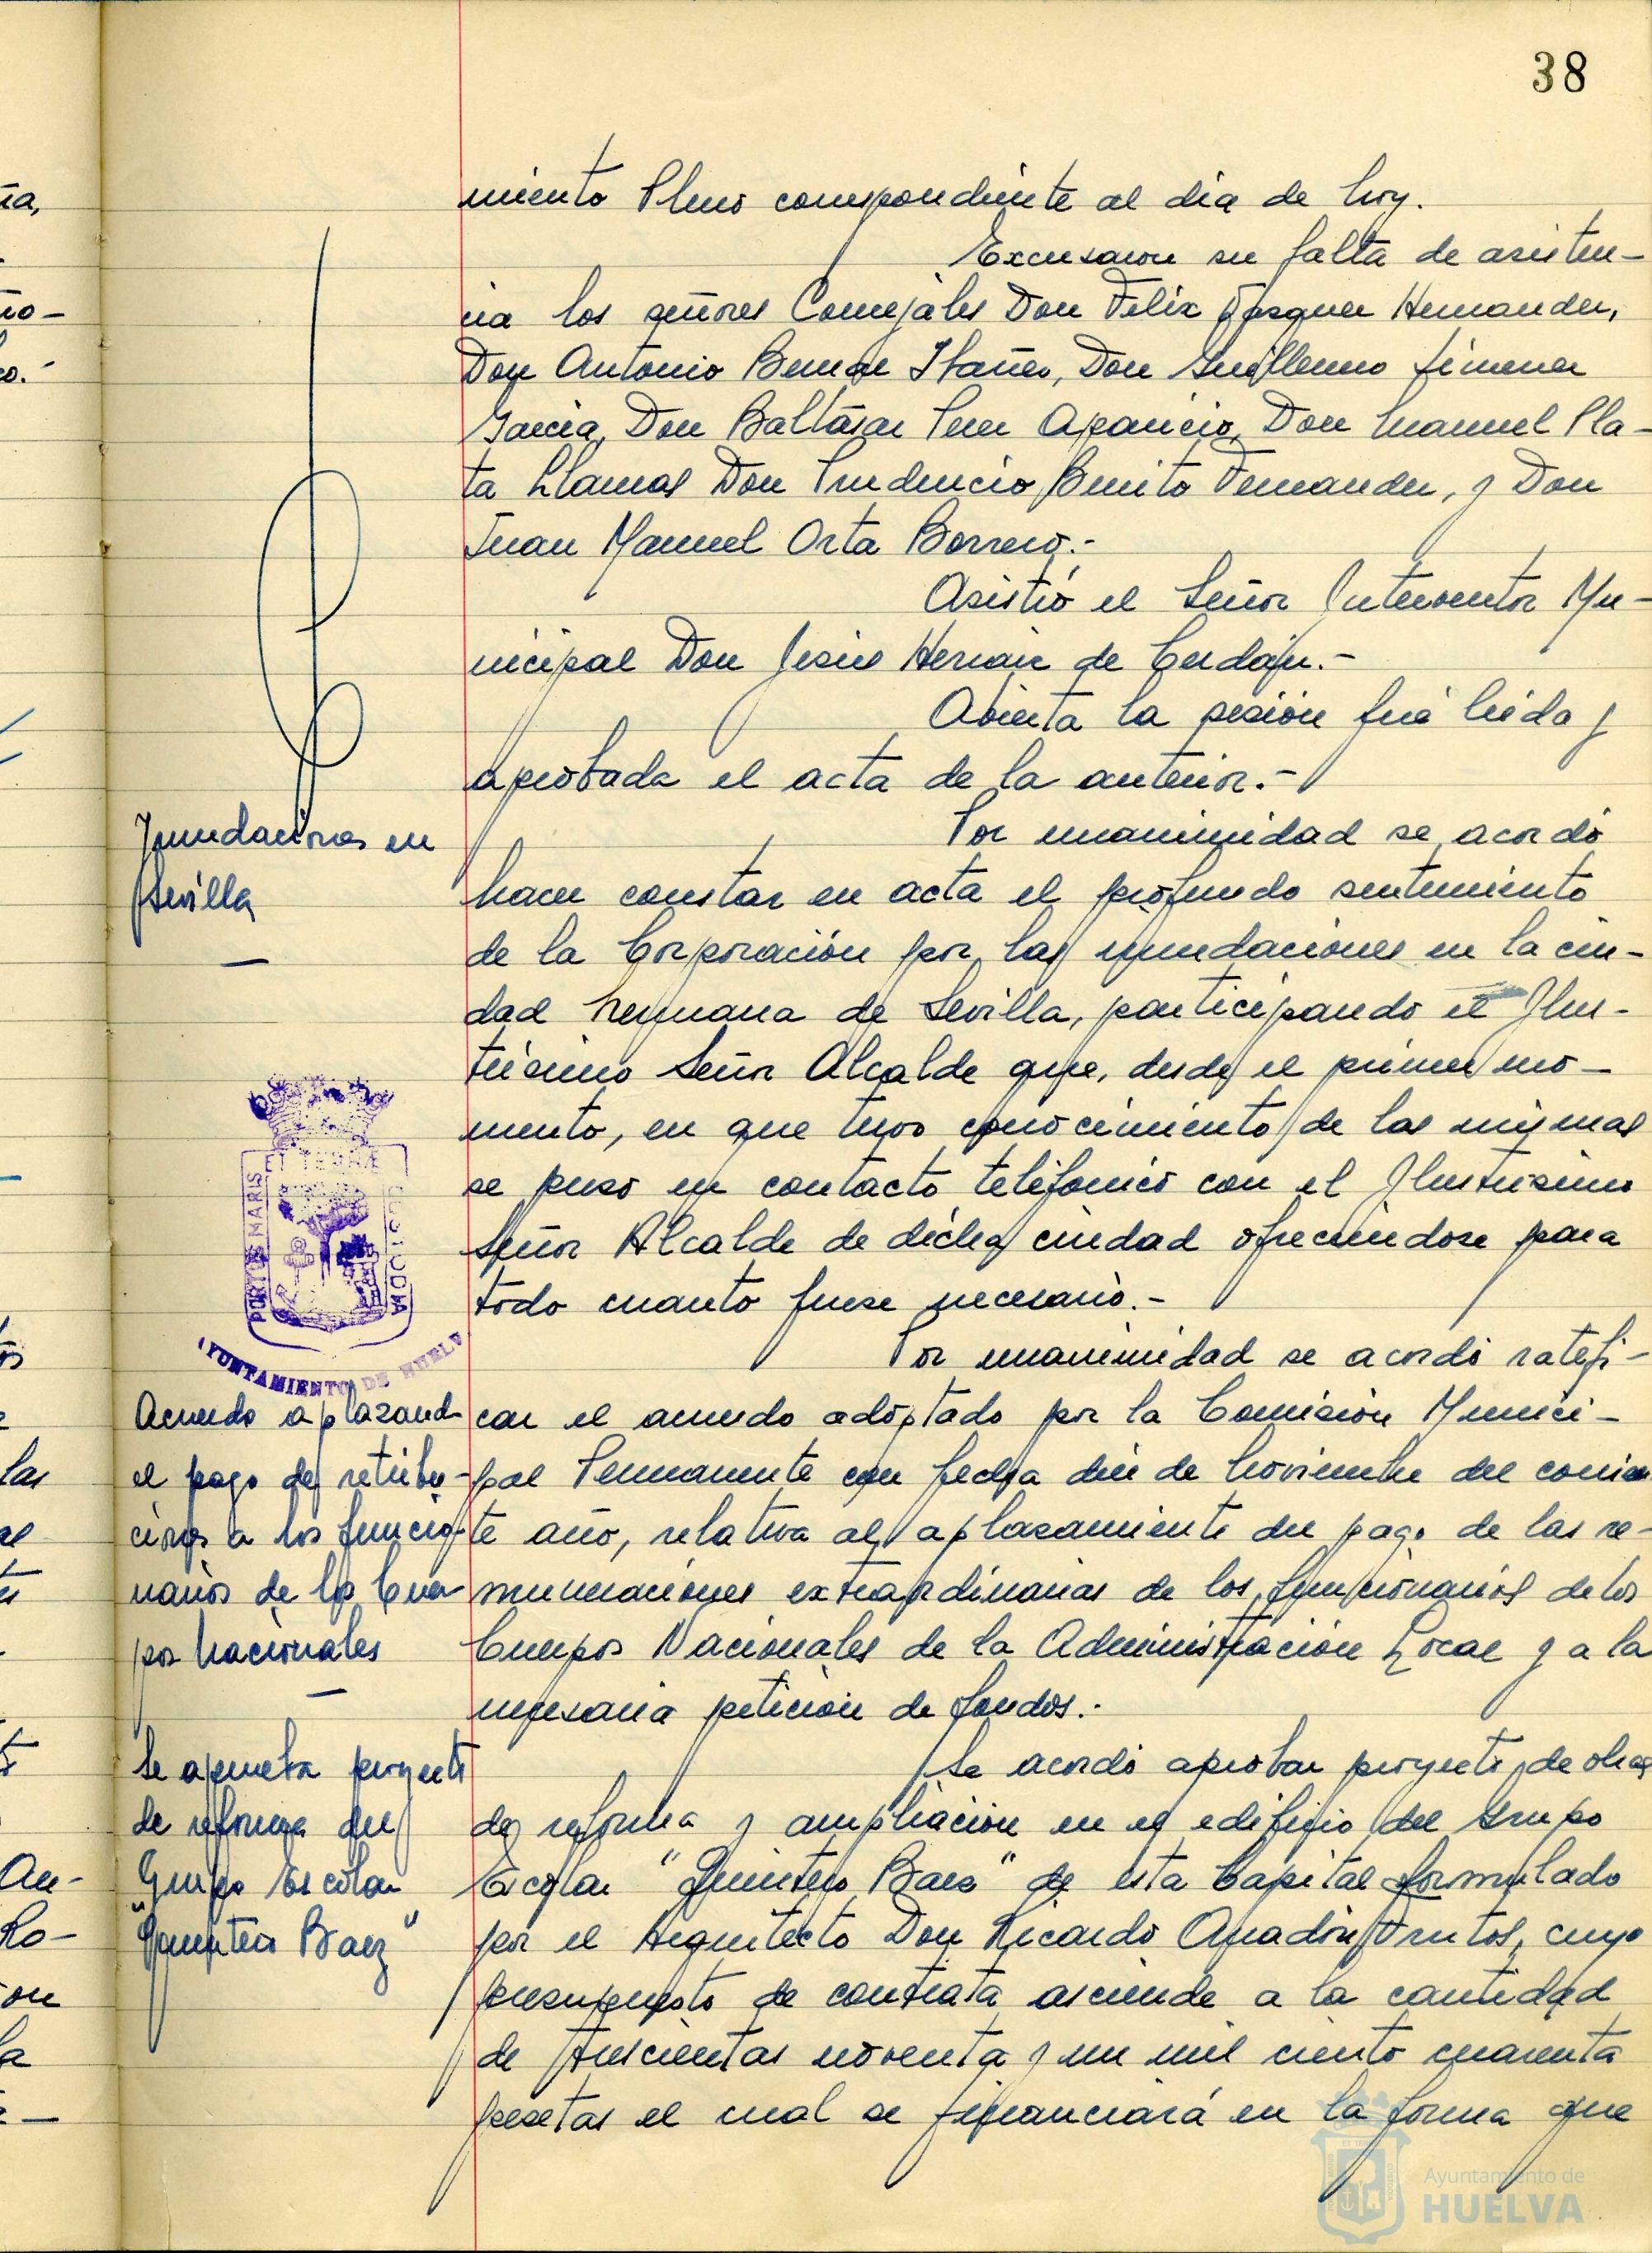 38
miento Pleno correspondiente al dia de hoy.
Excusaron su falta de asisten-
cia los señores Concejales Don Felix Vazquez Hernandez,
Don Antonio Bernal Ibañez, Don Guillermo Jimenez
Garcia, Don Baltásar Perez Aparicio, Don Manuel Pla-
ta Llamas Don Prudencio Benito Fernandez, y Don
Juan Manuel Orta Borrero.-
Asistió el Señor Interventor Mu-
nicipal Don Jesús Hernaiz de Cerdán.-
Abierta la sesión fué leida y
aprobada el acta de la anterior.-
Inundaciones en
Sevilla
Por unanimidad se acordó
hacer constar en acta el profundo sentimiento
de la Corporación por las inundaciones en la ciu-
dad hermana de Sevilla, participando el Ilus-
trísimo Señor Alcalde que, desde el primer mo-
mento, en que tuvo conocimiento de las mismas
se puso en contacto teléfonico con el Ilustrisimo
Señor Alcalde de dicha ciudad ofreciendose para
todo cuanto fuese necesario.-
PORTUS MARIS
ET TERRAE
CUSTODIA
AYUNTAMIENTO DE HUELV
Por unanimidad se acordó ratifi-
car el acuerdo adoptado por la Comisión Munici-
pal Permanente con fecha de Noviembre del corrien
te año, relativa al aplazamiento del pago de las re-
muneraciones extraordinarias de los funcionarios de los
Cuerpos Nacionales de la Administración Local y a la
necesaria petición de fondos.-
Acuerdo aplazand
el pago de retribu-
ciones a los funcio-
narios de los Cuer
pos Nacionales
Se aprueba proyecto
de reforma del
Grupo Escolar
"Quintero Baez"
Se acordó aprobar proyecto de obras
de reforma y ampliación en el edificio del Grupo
Escolar "Quintero Baez" de esta Capital formulado
por el Arquitecto Don Ricardo Anadón Frutos, cuyo
presupuesto de contrata asciende a la cantidad
de trescientas noventa y un mil ciento cuarenta
pesetas el cual se financiará en la forma que
Ayuntamiento de
HUELVA